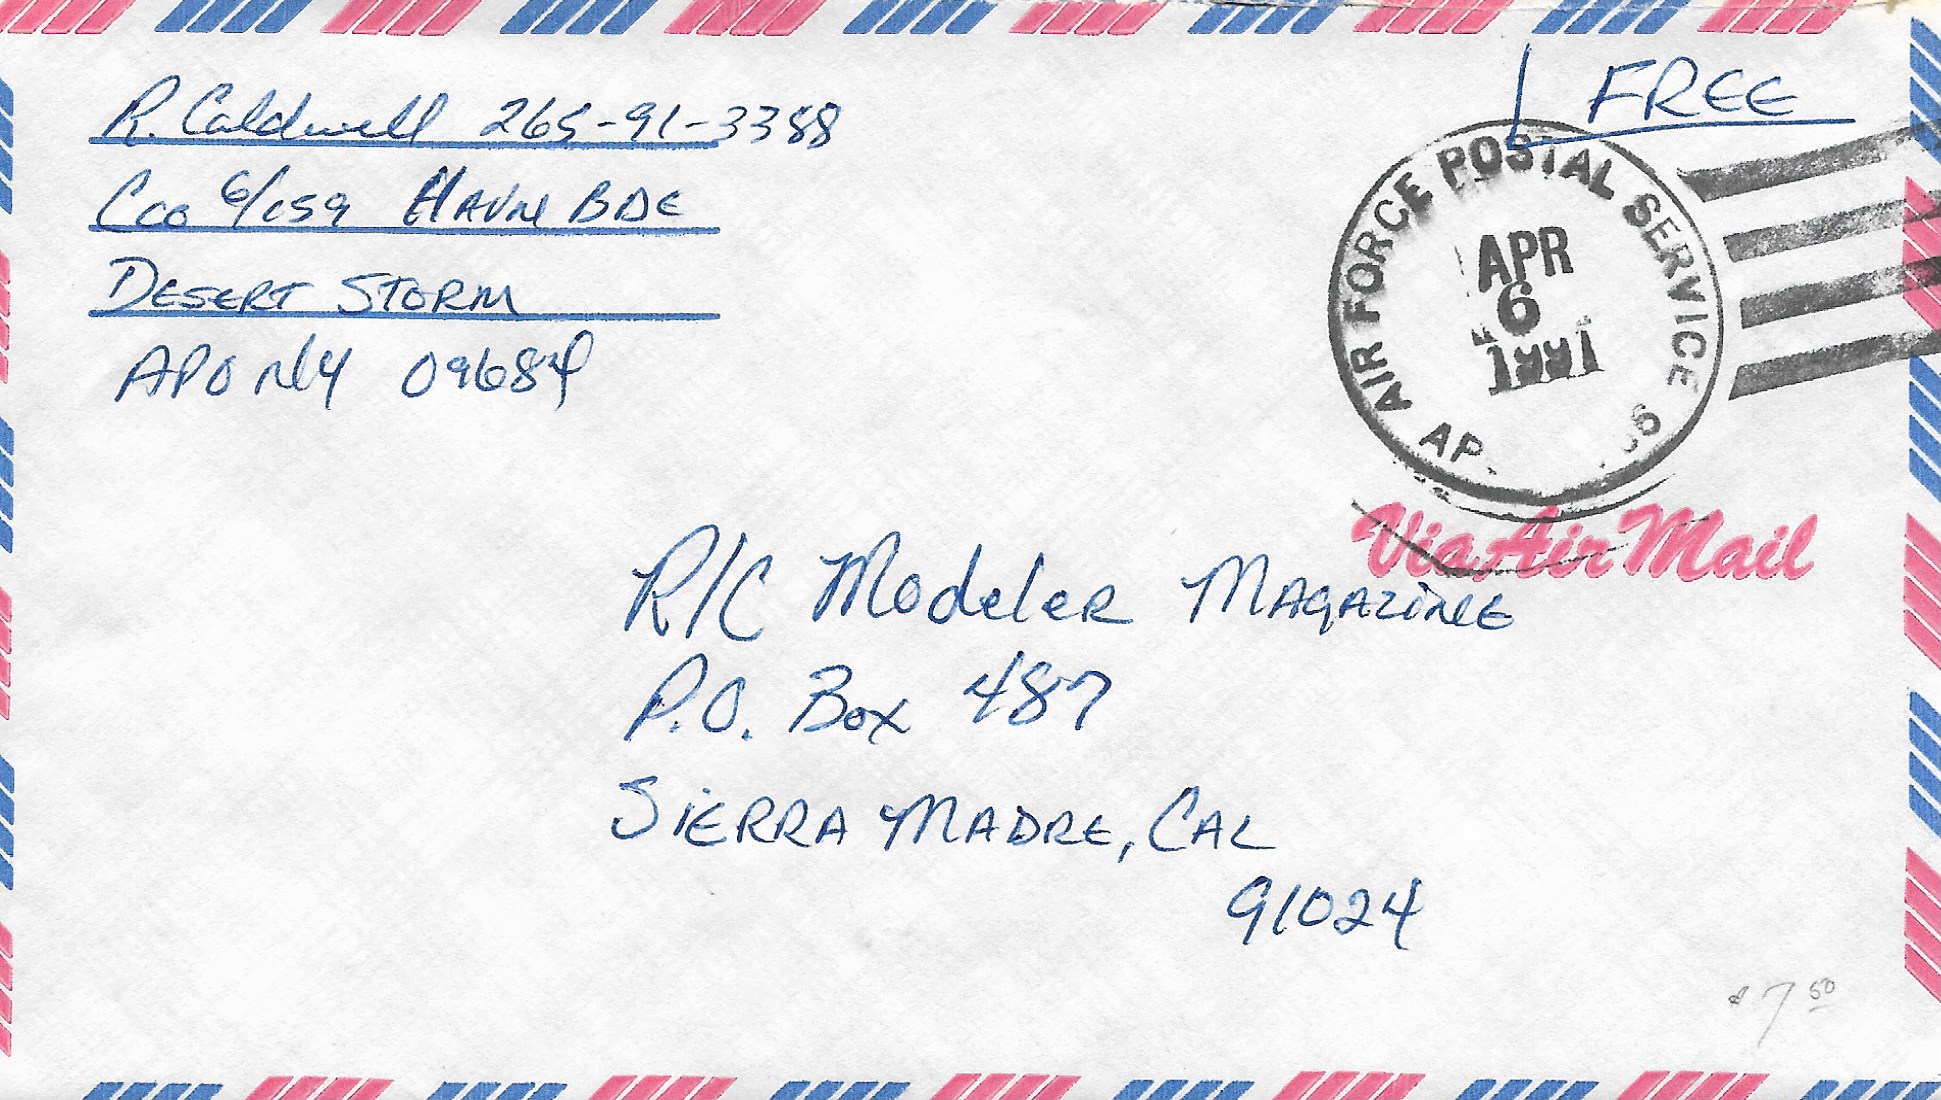 R. Caldwell 265-91-3388
Cco 6/159 11AVN BDE
DESERT STORM
APO NY 09684
FREE
AIR FORCE POSTAL SERVICE
APR
6
1991
Via Air Mail
R/C Modeler Magazine
P.O. Box 487
SIERRA MADRE, CAL
91024
$7 50